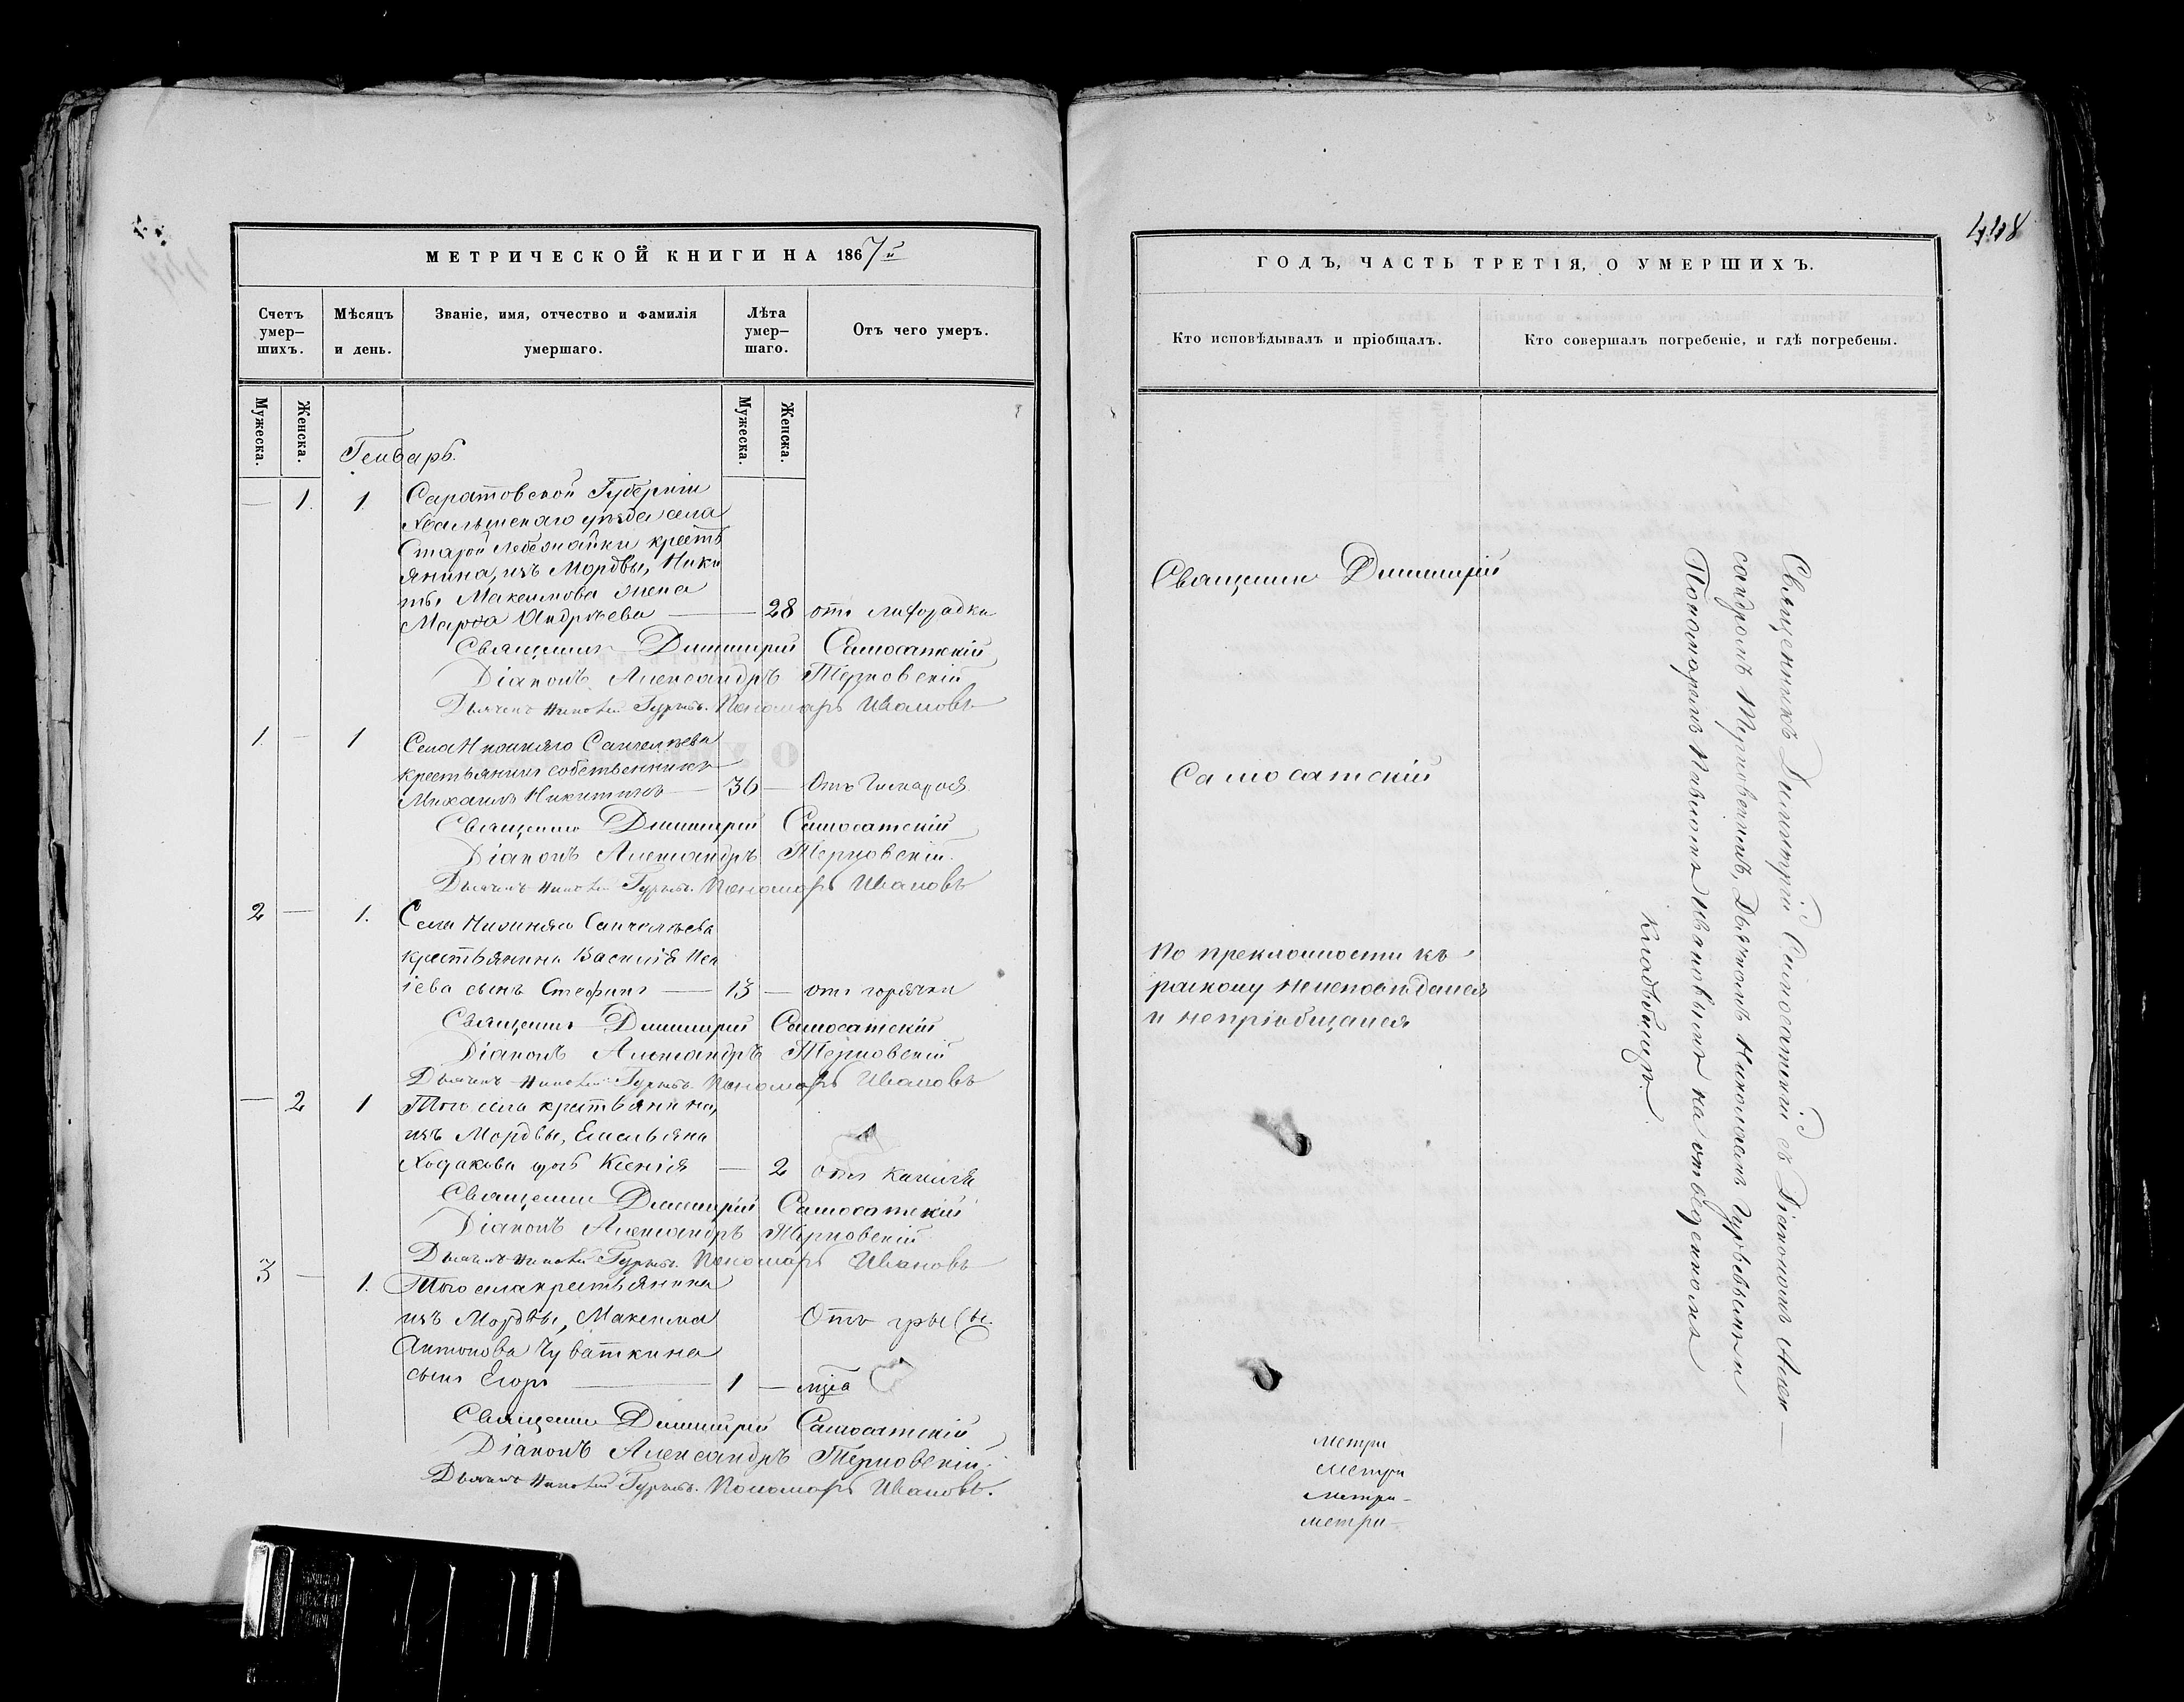 МЕТРИЧЕСКОЙ КНИГИ НА 1867й
Счетъ умер-шихъ.
Мѣсяцъ и день.
Званіе, имя, отчество и фамилія умершаго.
Лѣта умер-шаго.
Отъ чего умеръ.
Мужеска.
Женска.
Мужеска.
Женска.
Генварь.
— 1. 1. Саратовской Губерніи
уѣзда села
Старой Лебежайки кресть
янина, изъ Мордвы, Ники
ты Максимова жена
Марѳа Андрѣева — — 28 отъ лихорадки
Священникъ Димитрій Самосатскій
Діаконъ Александръ Терновскій
Дьячекъ Николай Гурьевъ. Пономарь Ивановъ
1. — 1 Села Нижняго Санчелѣева
крестьянинъ собственникъ
Михаилъ Никитинъ — 36 — Отъ
Священникъ Димитрій Самосатскій
Діаконъ Александръ Терновскій.
Дьячекъ Николай Гурьевъ. Пономарь Ивановъ
2 — 1. Села Нижняго Санчелѣева
крестьянина Василія
іева сынъ Стефанъ — 13 — отъ горячки
Священникъ Димитрій Самосатскій
Діаконъ Александръ Терновскій
Дьячекъ Николай Гурьевъ. Пономарь Ивановъ
— 2 1 Того села крестьянина,
изъ Мордвы, Емельяна
Ходакова дочь Ксенія — 2 отъ кашля
Священникъ Димитрій Самосатскій
Діаконъ Александръ Терновскій
Дьячекъ Николай Гурьевъ. Пономарь Ивановъ
3 — 1. Того села крестьянина
изъ Мордвы, Максима Отъ грысы.
Антонова Чуваткина
сынъ Егоръ — 1 —
Священникъ Димитрій Самосатскій
Діаконъ Александръ Терновскій.
Дьячекъ Николай Гурьевъ. Пономарь Ивановъ.
448
ГОДЪ, ЧАСТЬ ТРЕТІЯ, О УМЕРШИХЪ.
Кто исповѣдывалъ и пріобщалъ.
Кто совершалъ погребеніе, и гдѣ погребены.
Священникъ Димитрій
Самосатскій
По преклонности къ
расколу неисповѣдался
и непріобщался
Священникъ Димитрій Самосатскій съ Діакономъ Алек-
сандромъ Терновскимъ, Дьячкомъ Николаемъ Гурьевымъ и
Пономаремъ Ивановымъ на отведенномъ
кладбищѣ.
метри
метри
метри-
метри-